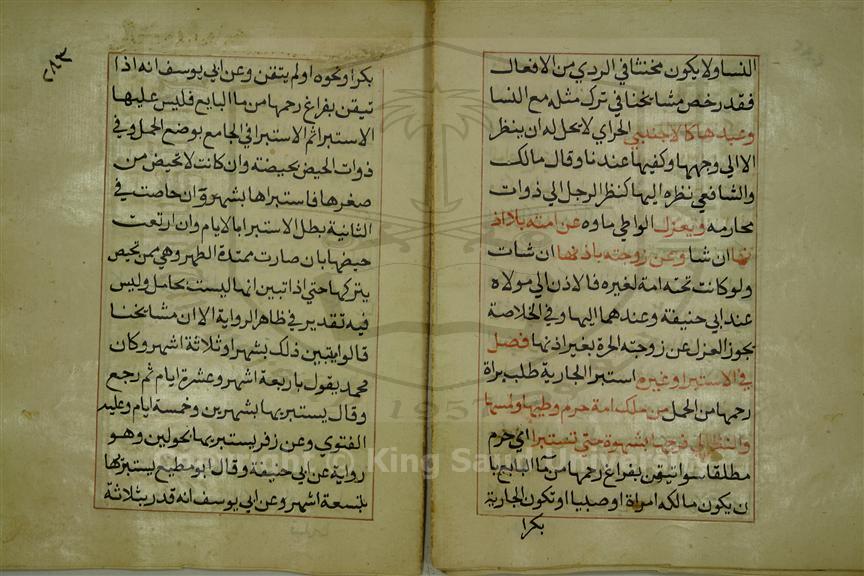 النسا ولا يكون مخنثا في الردي من الافعال
فقد رخص مشايخنا في ترك مثله مع النسا
وعبدها كالاجنبي الحراي لا يحل له ان ينظر
الا الي وجهها وكفيها عندنا وقال مالك
والشافعي نظره اليها كنظر الرجل الي ذوات
محارمه ويعزل الواطي ماوه عن امته بلا اذ
نها ان شا وعن زوجته باذنها ان شات
ولو كانت تحته امة لغيره فالاذن الي مولاه
عند ابي حنيفة وعندهما اليها وفي الخلاصة
يجوز العزل عن زوجته الحرة بغير اذنها فصل
في الاستبرا وغيره استبرا الجارية طلب براة
رحمها من الحمل من ملك امة حرم وطيها ولمسها
والنظر الي فرجها بشهوة حتي تستبرا اي حرم
مطلقا سوا تيقن بفراغ رحمها من ما البايع با
ن يكون مالكه امراة او صبيا او تكون الجارية
بكرا
٢٨٣
بكرا ونحوه او لم يتقن وعن ابي يوسف انه اذا
تيقن بفراغ رحمها من ما البايع فليس عليها
الاستبرا ثم الاستبرا في الجامع بوضع الحمل وفي
ذوات الحيض بحيضته وان كانت لا تحيض من
صغرها فاستبراها بشهر وان حاضت في
الثانية بطل الاستبرا بالايام وان ارتفعت
حيضها بان صارت ممتدة الطهر وهي ممن تحيض
يتركها حتي اذا تبين انها ليست بحامل وليس
فيه تقدير في ظاهر الرواية الا ان مشايخنا
قالوا يتبين ذلك بشهر او ثلاثة اشهر وكان
محمد يقول باربعة اشهر وعشرة ايام ثم رجع
وقال يستبريها بشهرين وخمسة ايام وعليه
الفتوي وعن زفر يستبريها بحولين وهو
رواية عن ابي حنيفة وقال ابو مطيع يستبرئها
بتسعة اشهر وعن ابي يوسف انه قدر بثلاثة
1957
© King Saud University